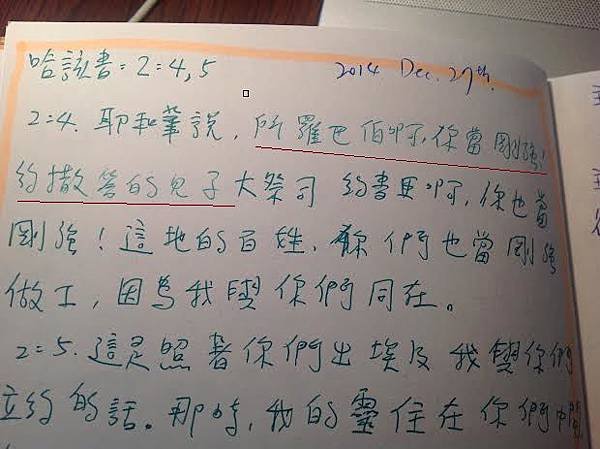 哈該書:2:4,5 2014 Dec. 27th.
2:4. 耶和華說,所羅巴伯啊,你當剛強!
約撒答的兒子大祭司 約書亞啊,你也當
剛強!這地的百姓,你們也當剛強
做工,因為我與你們同在。
2:5. 這是照著你們出埃及我與你們
立約的話。那時,我的靈住在你們中間